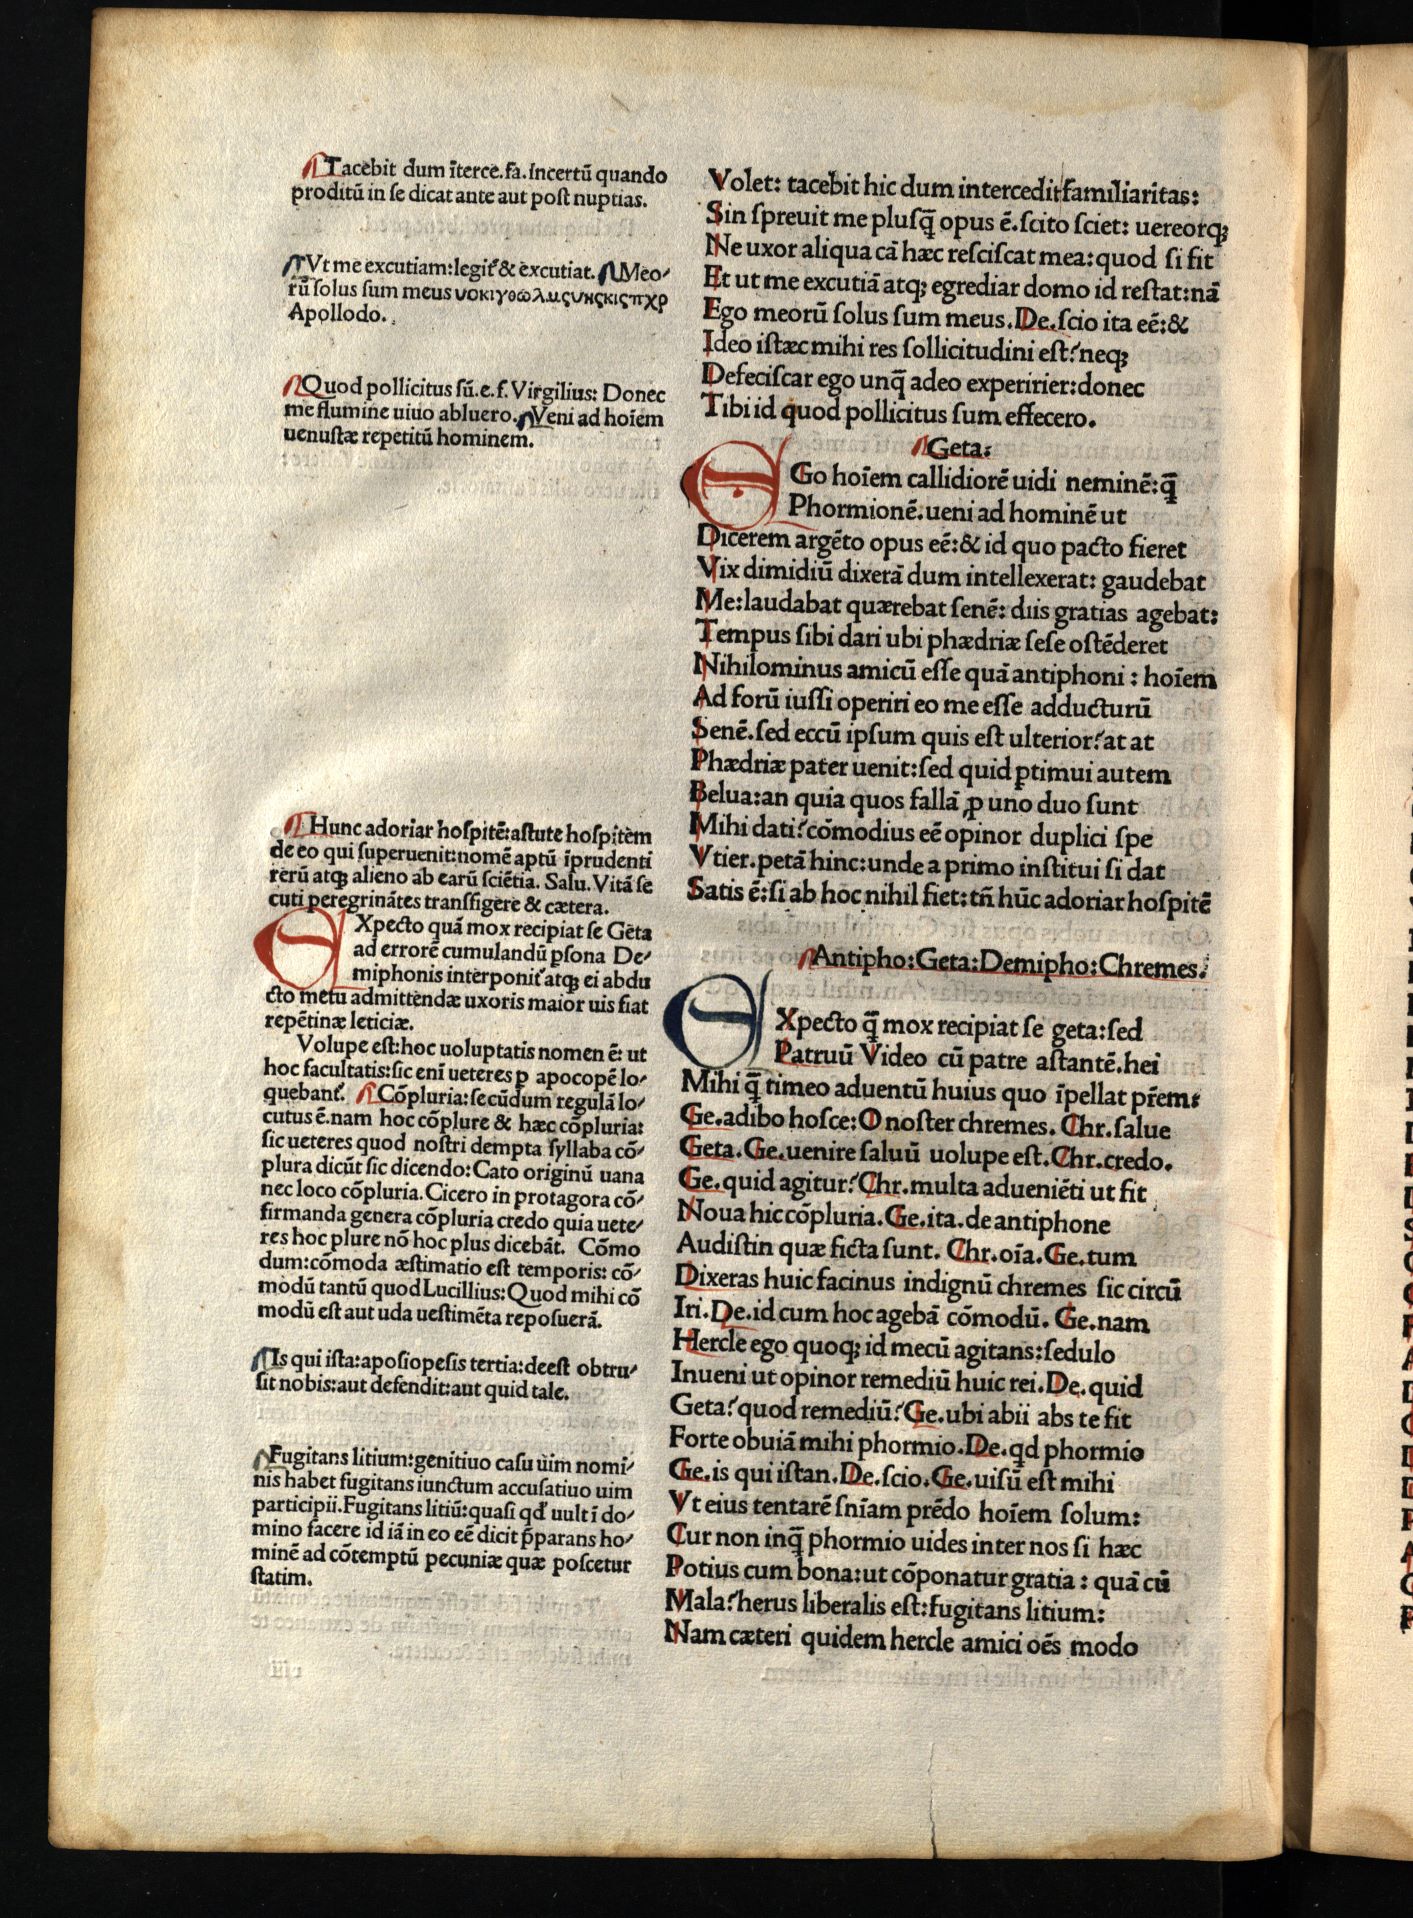 Tacebit dum ĩterce.fa.Incertũ quando
proditũ in ſe dicat ante aut poſt nuptias.
Vt me excutiam:legit᷑ & excutiat. Meo-
rũ ſolus ſum meus
Apollodo.
Quod pollicitus ſũ.e.f.Virgilius: Donec
me flumine uiuo abluero. Veni ad hoĩem
uenuſtæ repetitũ hominem.
Hunc adoriar hoſpitẽ:aſtute hoſpitem
de eo qui ſuperuenit:nomẽ aptũ ĩprudenti
rerũ atqꝫ alieno ab earũ ſciẽtia. Salu. Vitã ſe
cuti peregrinãtes tranſfigere & cætera.
EXpecto quã mox recipiat ſe Geta
ad errorẽ cumulandũ ꝑſona De-
miphonis interponit᷑ atqꝫ ei abdu
cto metu admittendæ uxoris maior uis fiat
repẽtinæ leticiæ.
Volupe eſt:hoc uoluptatis nomen ẽ: ut
hoc facultatis:ſic enĩ ueteres ꝑ apocopẽ lo-
quebant᷑. Cõpluria:ſecũdum regulã lo-
cutus ẽ.nam hoc cõplure & hæc cõpluria:
ſic ueteres quod noſtri dempta ſyllaba cõ-
plura dicũt ſic dicendo:Cato originũ uana
nec loco cõpluria.Cicero in protagora cõ-
firmanda genera cõpluria credo quia uete-
res hoc plure nõ hoc plus dicebãt. Cõmo
dum:cõmoda æſtimatio eſt temporis: cõ-
modũ tantũ quod Lucillius:Quod mihi cõ
modũ eſt aut uda ueſtimẽta repoſuerã.
Is qui iſta:apoſiopeſis tertia:deeſt obtru-
ſit nobis:aut defendit:aut quid tale.
Fugitans litium:genitiuo caſu uim nomi-
nis habet fugitans iunctum accuſatiuo uim
participii.Fugitans litiũ:quaſi qđ uult ĩ do-
mino facere id iã in eo eẽ dicit p̃parans ho-
minẽ ad cõtemptũ pecuniæ quæ poſcetur
ſtatim.
Volet: tacebit hic dum intercedit familiaritas:
Sin ſpreuit me pluſq̃ opus ẽ.ſcito ſciet: uereorqꝫ
Ne uxor aliqua cã hæc reſciſcat mea:quod ſi fit
Et ut me excutiã atqꝫ egrediar domo id reſtat:nã
Ego meorũ ſolus ſum meus.De.ſcio ita eẽ:&
Ideo iſtæc mihi res ſollicitudini eſt?neqꝫ
Defeciſcar ego unq̃ adeo experirier:donec
Tibi id quod pollicitus ſum effecero.
Geta:
EGo hoĩem callidiorẽ uidi neminẽ:q̃
Phormionẽ.ueni ad hominẽ ut
Dicerem argẽto opus eẽ:& id quo pacto fieret
Vix dimidiũ dixerã dum intellexerat: gaudebat
Me:laudabat quærebat ſenẽ: diis gratias agebat:
Tempus ſibi dari ubi phædriæ ſeſe oſtẽderet
Nihilominus amicũ eſſe quã antiphoni : hoĩem
Ad forũ iuſſi operiri eo me eſſe adducturũ
Senẽ.ſed eccũ ipſum quis eſt ulterior?at at
Phædriæ pater uenit:ſed quid ꝑtimui autem
Belua:an quia quos fallã ꝓ uno duo ſunt
Mihi dati?cõmodius eẽ opinor duplici ſpe
Vtier.petã hinc:unde a primo inſtitui ſi dat
Satis ẽ:ſi ab hoc nihil fiet:tñ hũc adoriar hoſpitẽ
Antipho:Geta:Demipho:Chremes.
EXpecto q̃ mox recipiat ſe geta:ſed
Patruũ Video cũ patre aſtantẽ.hei
Mihi q̃ timeo aduentũ huius quo ĩpellat pr̃em:
Ge.adibo hoſce:O noſter chremes. Chr.ſalue
Geta.Ge.uenire ſaluũ uolupe eſt.Chr.credo.
Ge.quid agitur?Chr.multa adueniẽti ut fit
Noua hic cõpluria.Ge.ita.de antiphone
Audiſtin quæ ficta ſunt. Chr.oĩa.Ge.tum
Dixeras huic facinus indignũ chremes ſic circũ
Iri.De.id cum hoc agebã cõmodũ. Ge.nam
Hercle ego quoqꝫ id mecũ agitans:ſedulo
Inueni ut opinor remediũ huic rei.De.quid
Geta?quod remediũ?Ge.ubi abii abs te fit
Forte obuiã mihi phormio.De.qd phormio
Ge.is qui iſtan.De.ſcio.Ge.uiſũ eſt mihi
Vt eius tentarẽ ſnĩam prẽdo hoĩem ſolum:
Cur non inq̃ phormio uides inter nos ſi hæc
Potius cum bona:ut cõponatur gratia : quã cũ
Mala?herus liberalis eſt:fugitans litium:
Nam cæteri quidem hercle amici oẽs modo